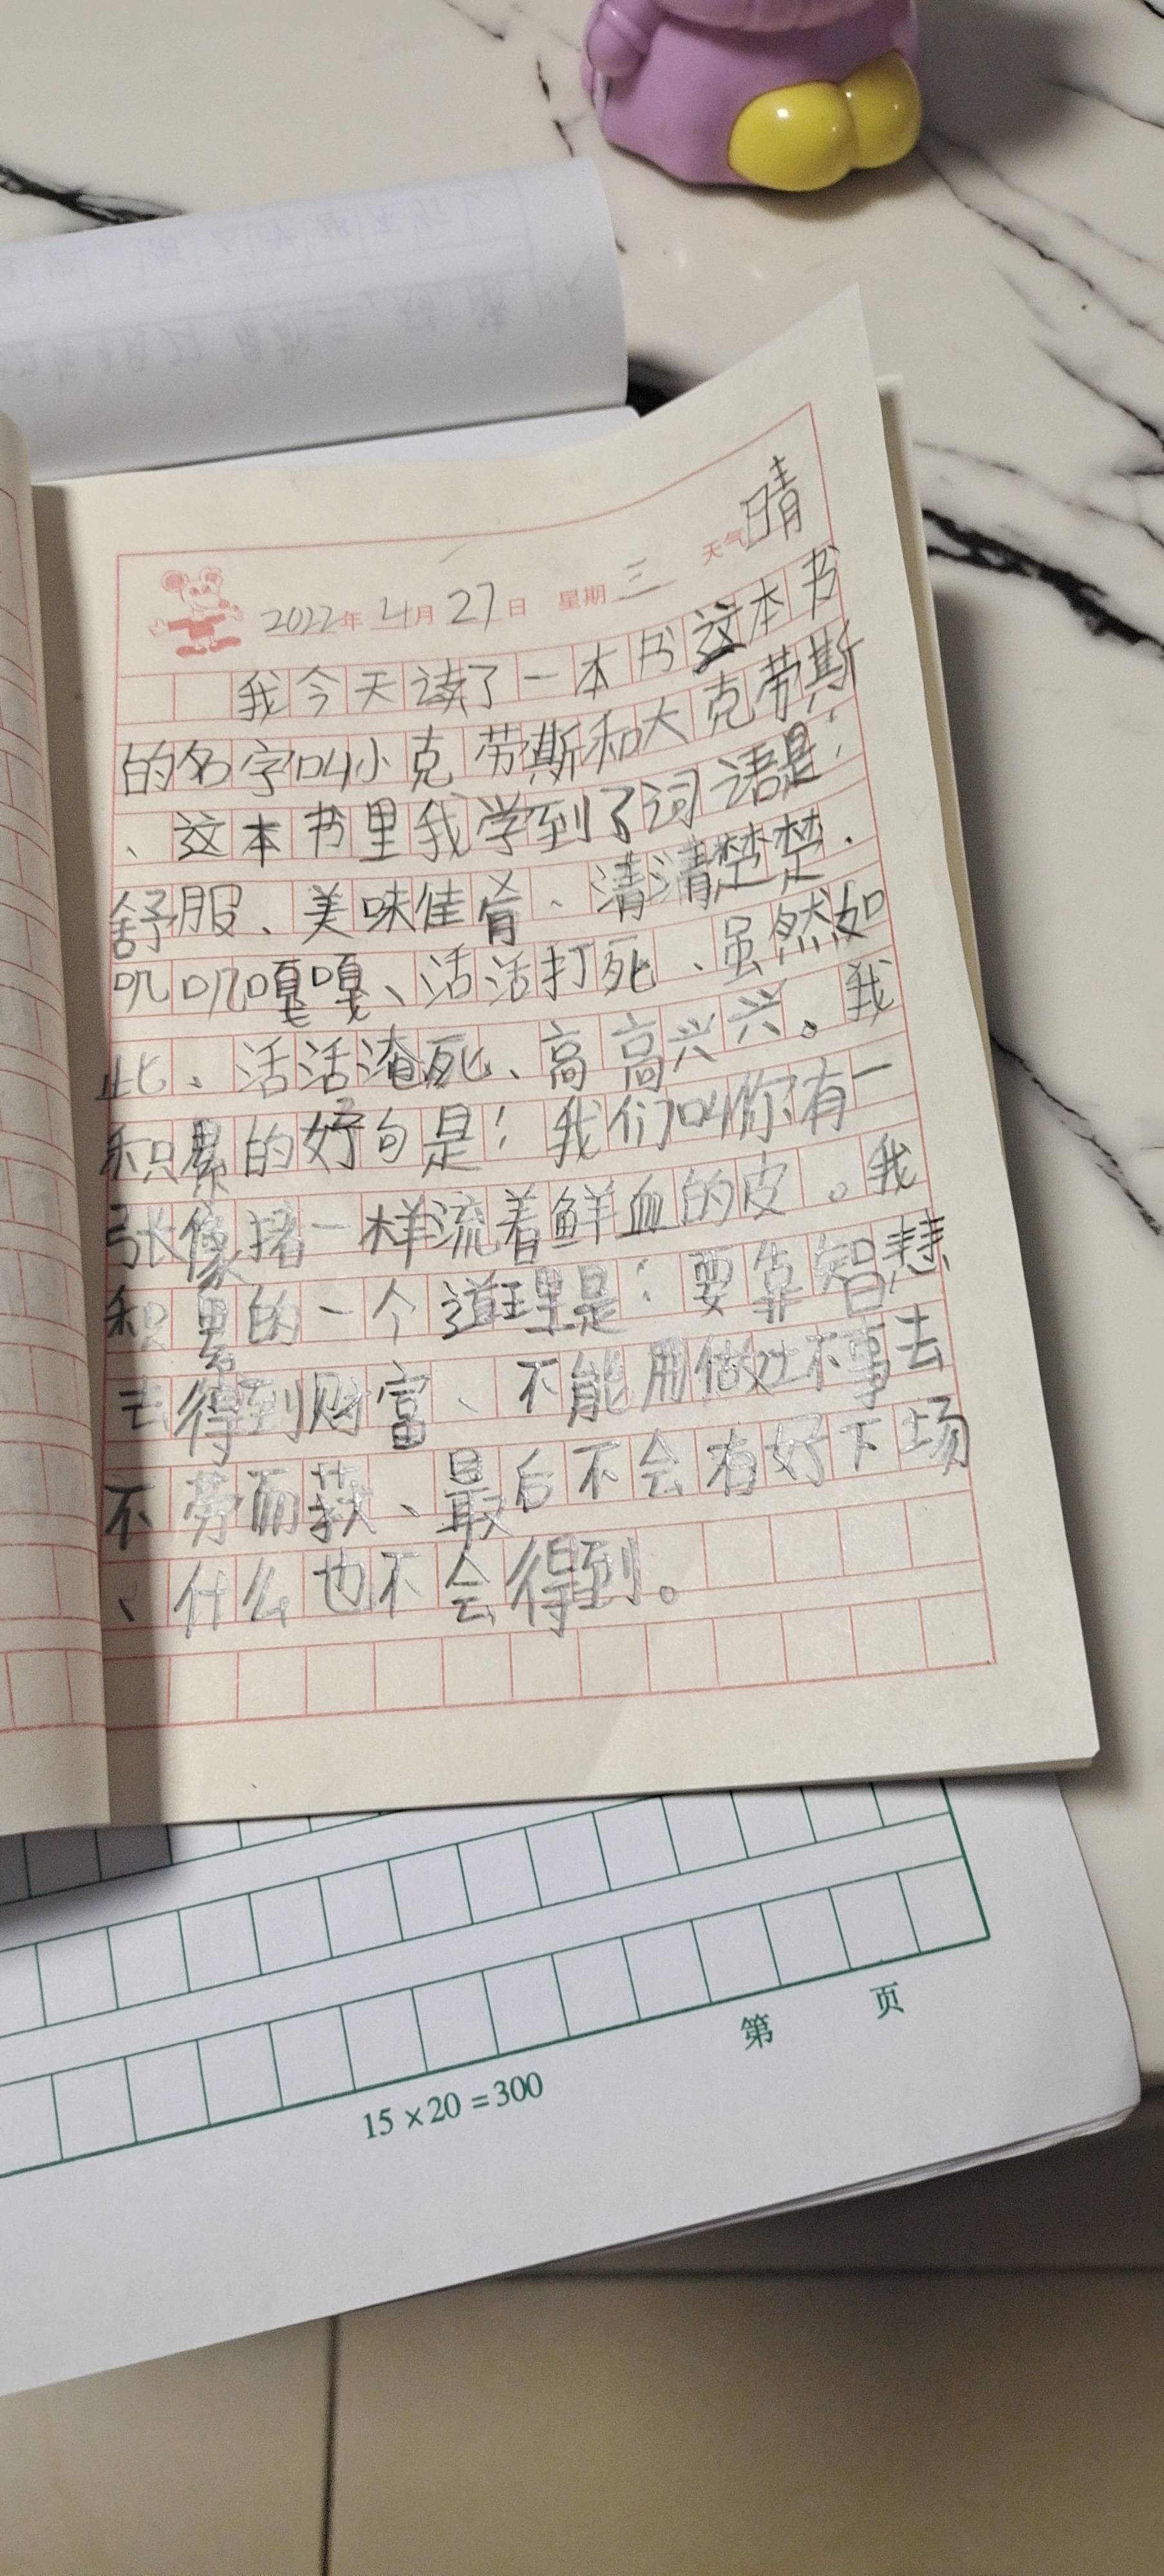 2022年4月27日 星期三 天气晴
我今天读了一本书这本书
的名字叫小克劳斯和大克劳斯
、这本书里我学到了词语是:
舒服、美味佳肴、清清楚楚.
叽叽嘎嘎、活活打死、虽然如
此、活活淹死、高高兴兴。我
积累的好句是!我们叫你有一
张像猪一样流着鲜血的皮。我
积累的一个道理是:要靠智慧
去得到财富、不能用做坏事去
不劳而获、最后不会有好下场
、什么也不会得到。
15×20=300
第 页